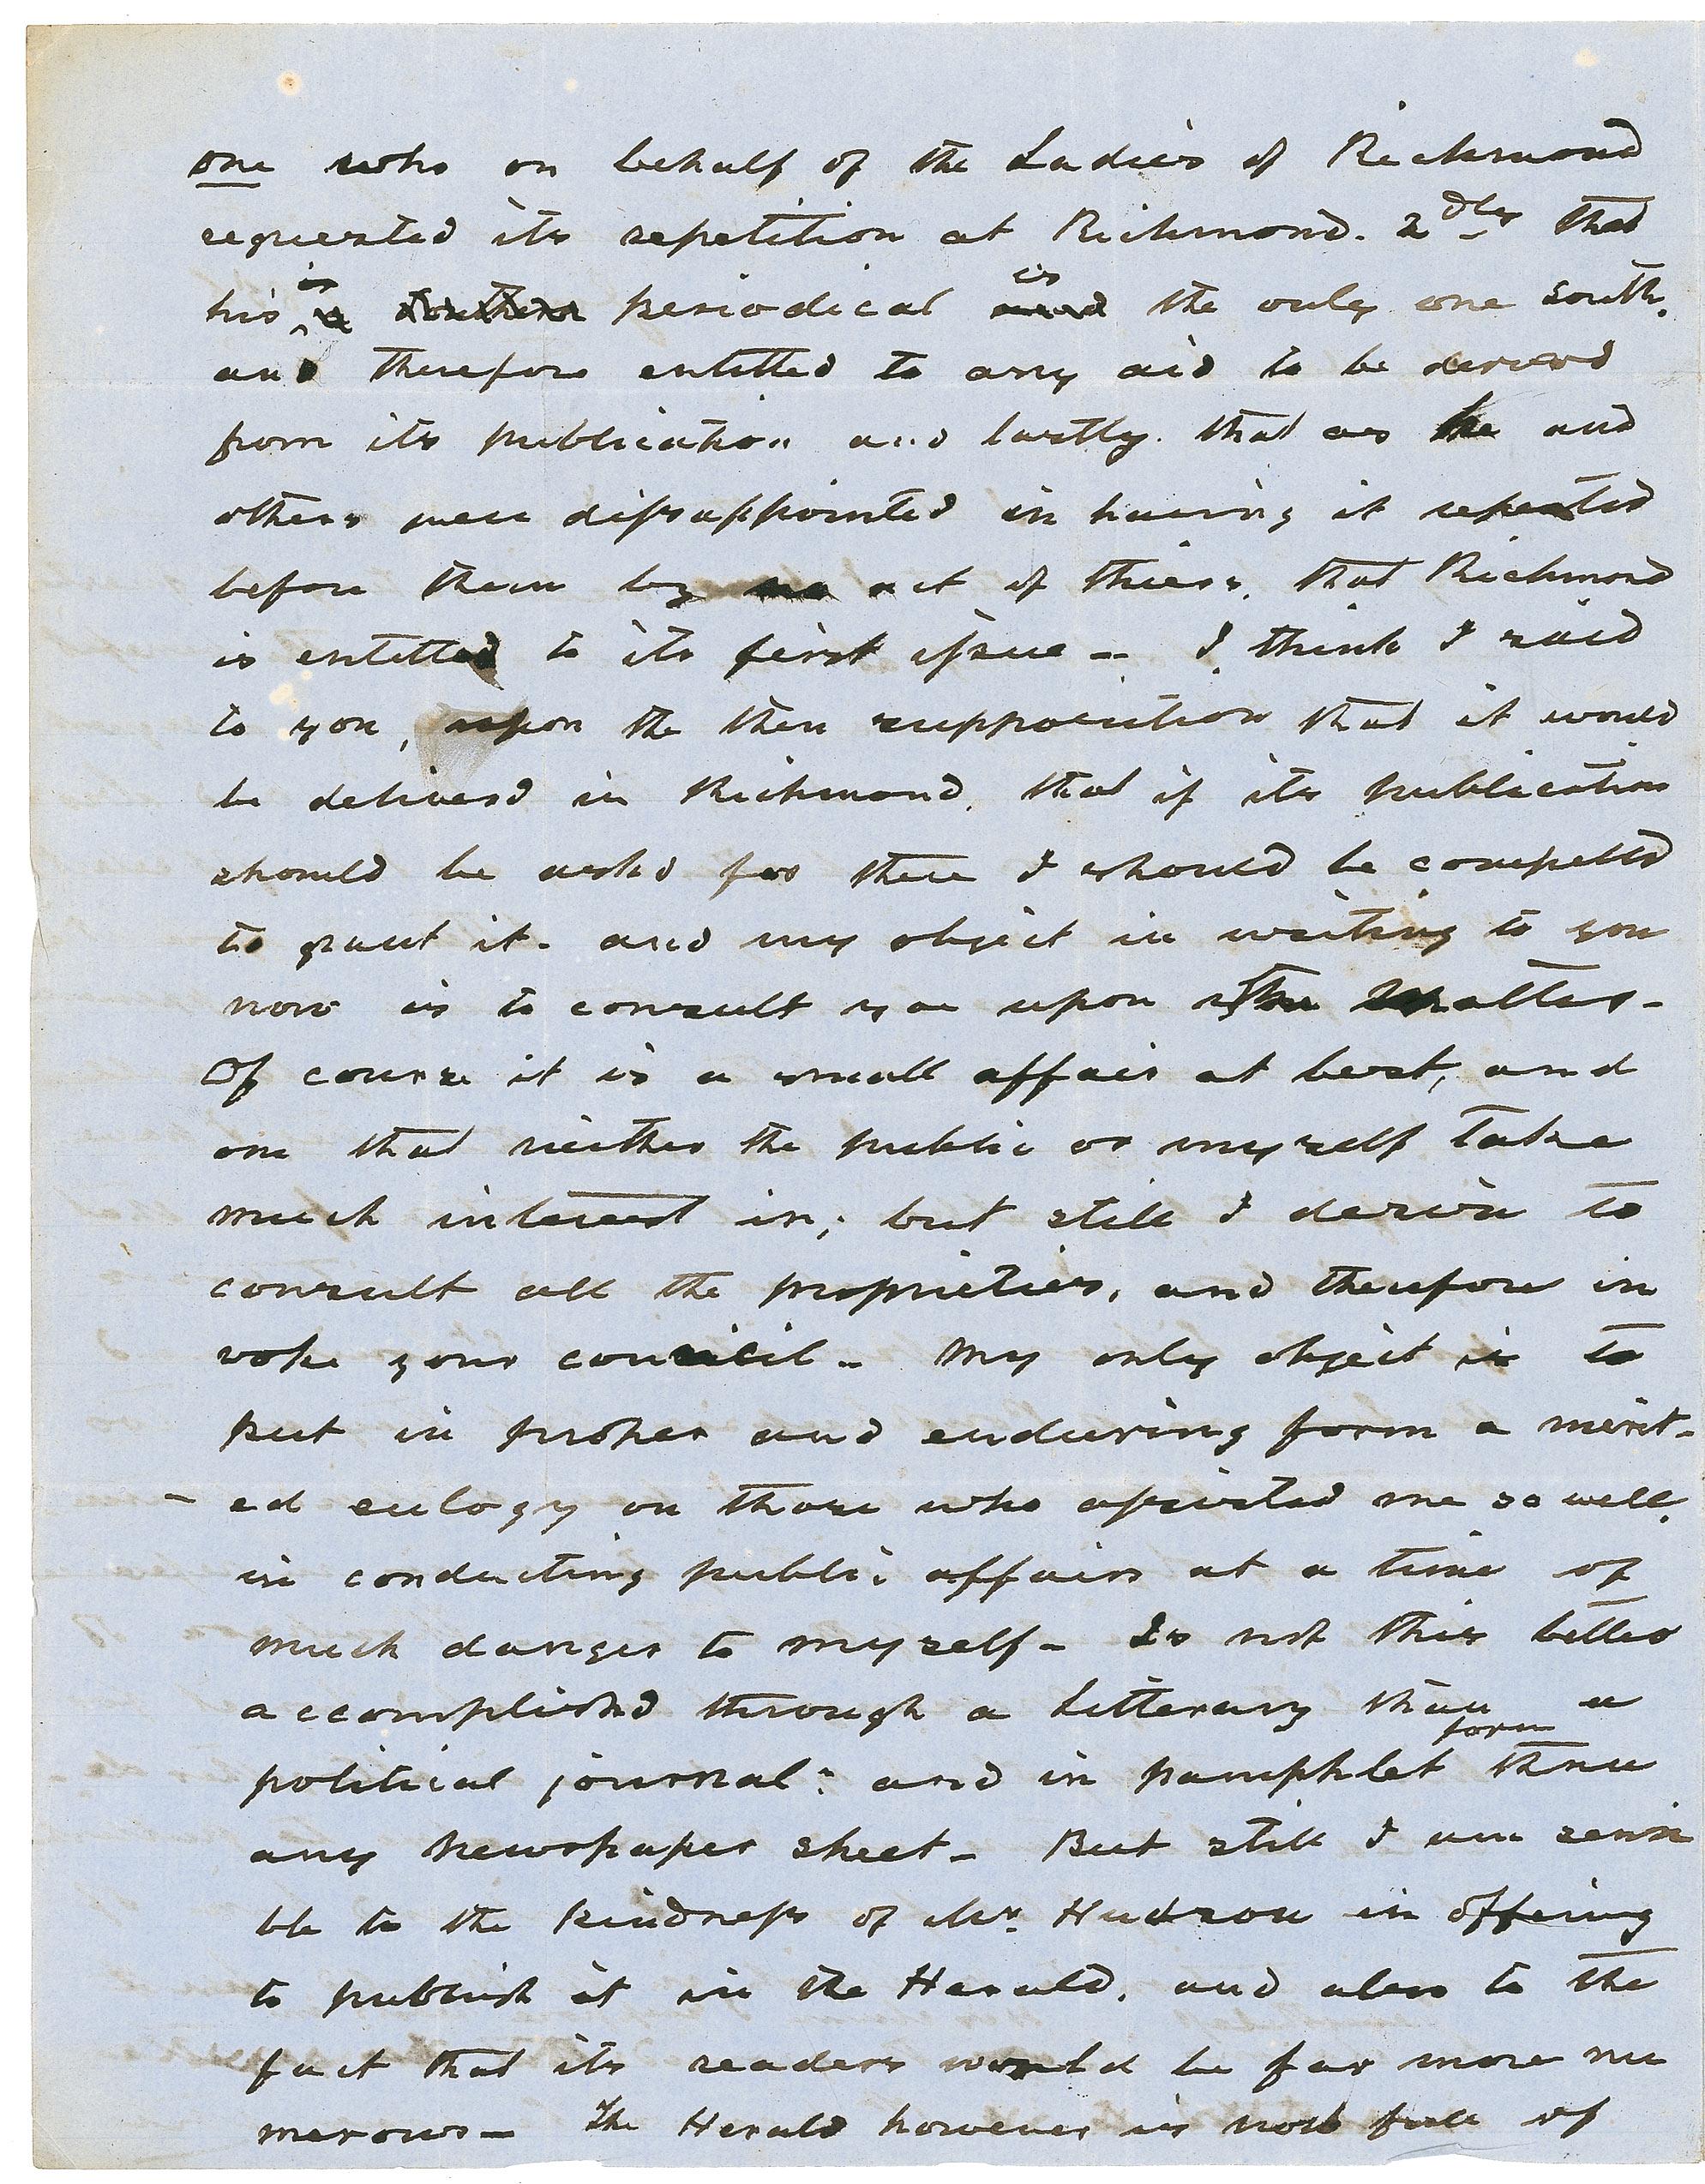 one who on behalf of the Ladies of Richmond
requested its repetition at Richmond. 2dly that
his is periodical is the only one south.
and therefore entitled to any aid to be derived
from its publication and lastly. that as he and
others were dissappointed in having it repeated
before them by no act of theirs, that Richmond
is entitled to its first issue - I think I said
to you, upon the then supposition that it would
be deliverd in Richmond, that if its publication
should be askd for there I should be compelld
to grant it - and my object in writing to you
now is to consult you upon the matter -
Of course it is a small affair at best, and
one that neither the public or myself take
much interest in; but still I desire to
consult all the proprieties, and therefore in
voke your council - My only object is to
put in proper and enduring form a merit-
- ed eulogy on those who assisted me so well.
in conducting public affairs at a time of
much danger to myself - Is not this better
accomplishd through a Litterary than a
political journal: and in pamphlet form than
any newspaper sheet - But still I am sensi
ble to the kindness of Mr. Hudson in offering
to publish it in the Herald, and also to the
fact that its readers would be far more nu
merous - The Herald however is now full of